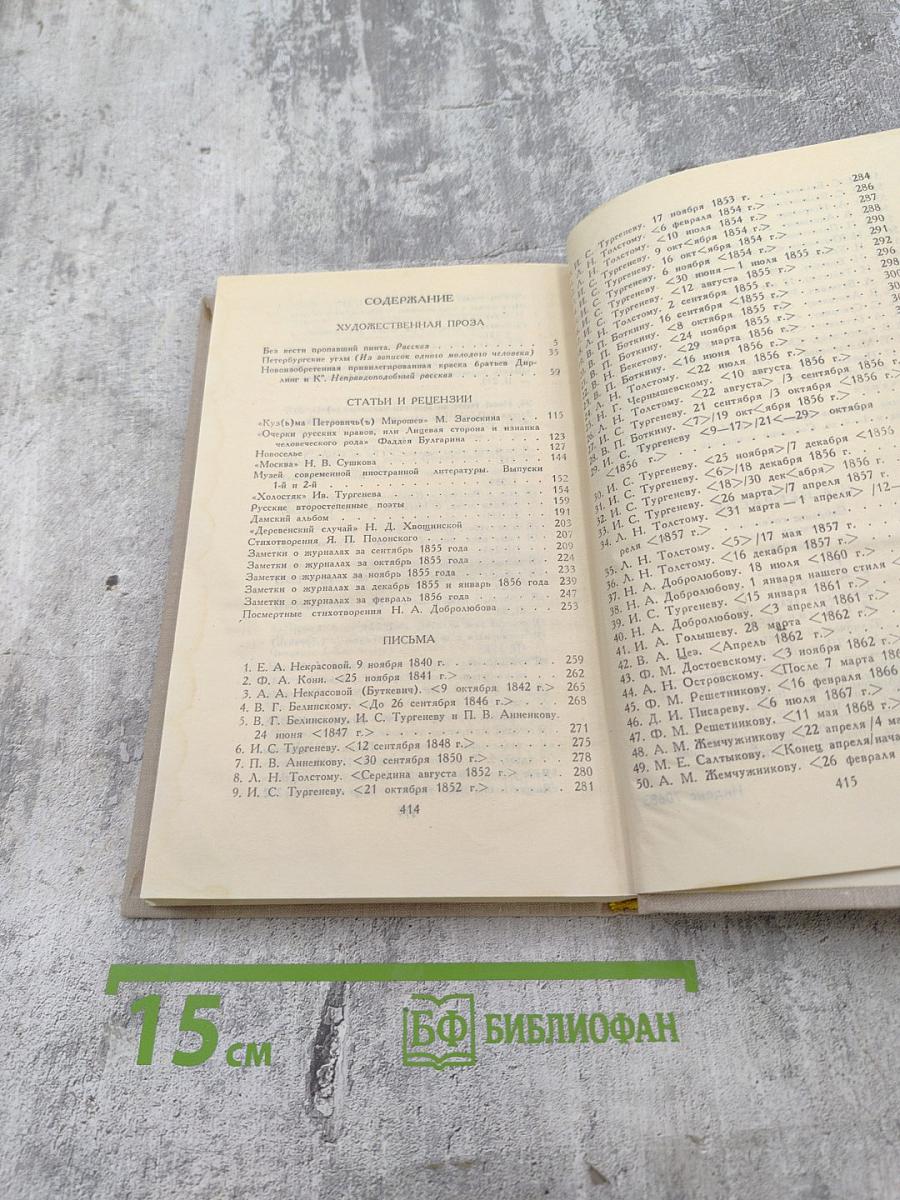 СОДЕРЖАНИЕ
ХУДОЖЕСТВЕННАЯ ПРОЗА
Без вести пропавший пиита. Рассказ 5
Петербургские углы (Из записок одного молодого человека) 35
Новоизобретенная привилегированная краска братьев Дир-
линг и К°. Неправдоподобный рассказ 59
СТАТЬИ И РЕЦЕНЗИИ
«Куз(ь)ма Петровичь(ъ) Мирошев» М. Загоскина . . . 115
«Очерки русских нравов, или Лицевая сторона и изнанка
человеческого рода» Фаддея Булгарина . . . 123
Новоселье . . . 127
«Москва» Н. В. Сушкова . . . 144
Музей современной иностранной литературы. Выпуски
1-й и 2-й . . . 152
«Холостяк» Ив. Тургенева . . . 154
Русские второстепенные поэты . . . 159
Дамский альбом . . . 191
«Деревенский случай» Н. Д. Хвощинской . . . 203
Стихотворения Я. П. Полонского . . . 207
Заметки о журналах за сентябрь 1855 года . . . 209
Заметки о журналах за октябрь 1855 года . . . 224
Заметки о журналах за ноябрь 1855 года . . . 233
Заметки о журналах за декабрь 1855 и январь 1856 года 239
Заметки о журналах за февраль 1856 года . . . 247
Посмертные стихотворения Н. А. Добролюбова . . . 253
ПИСЬМА
1. Е. А. Некрасовой. 9 ноября 1840 г. . . . 259
2. Ф. А. Кони. <25 ноября 1841 г.> . . . 262
3. А. А. Некрасовой (Буткевич). <9 октября 1842 г.> 265
4. В. Г. Белинскому. <До 26 сентября 1846 г.> . . . 268
5. В. Г. Белинскому, И. С. Тургеневу и П. В. Анненкову.
24 июня <1847 г.> . . . 271
6. И. С. Тургеневу. <12 сентября 1848 г.> . . . 275
7. П. В. Анненкову. <30 сентября 1850 г.> . . . 278
8. Л. Н. Толстому. <Середина августа 1852 г.> . . . 280
9. И. С. Тургеневу. <21 октября 1852 г.> . . . 281
414
И. С. Тургеневу. 17 ноября 1853 г. . . . 284
Л. Н. Толстому. <6 февраля 1854 г.> . . . 286
Л. Н. Толстому. <10 июля 1854 г.> . . . 287
И. С. Тургеневу. 9 окт<ября 1854 г.> . . . 288
И. С. Тургеневу. 16 окт<ября 1854 г.> . . . 290
И. С. Тургеневу. 6 ноября <1854 г.> . . . 291
И. С. Тургеневу. <30 июня — 1 июля 1855 г.> . . . 292
И. С. Тургеневу. <12 августа 1855 г.> . . . 296
Л. Н. Толстому. 2 сентября 1855 г. . . . 298
В. П. Боткину. 16 сентября <1855 г.>
В. П. Боткину. <8 октября 1855 г.>
В. П. Боткину. <24 ноября 1855 г.>
В. Н. Бекетову. <29 марта 1856 г.>
В. П. Боткину. <16 июня 1856 г.>
Л. Н. Толстому. <22 июля 1856 г.>
Н. Г. Чернышевскому. <10 августа 1856 г.>
Л. Н. Толстому. <22 августа> /3 сентября 1856 г.
И. С. Тургеневу. 21 сентября /3 октября <1856 г.>
28. В. П. Боткину. <7>/19 окт<ября 1856 г.>
29. И. С. Тургеневу <9—17>/21<—29> октября
<1856 г.>
30. И. С. Тургеневу. <25 ноября>/7 декабря <1855
31. И. С. Тургеневу. <6>/18 декабря 1856 г.
32. И. С. Тургеневу. <18>/30 дек<абря> 1856 г.
33. И. С. Тургеневу. <26 марта>/7 апреля 1857 г.
34. Л. Н. Толстому. <31 марта — 1 апреля> /12—
реля <1857 г.>
35. Л. Н. Толстому. <5> /17 мая 1857 г.
36. Л. Н. Толстому. <16 декабря 1857 г.>
37. Н. А. Добролюбову. 18 июля <1860 г.>
38. Н. А. Добролюбову. 1 января нашего стиля <
39. И. С. Тургеневу. <15 января 1861 г.>
40. Н. А. Добролюбову. <3 апреля 1861 г.>
41. И. А. Голышеву. 28 марта <1862 г.>
42. В. А. Цеэ. <Апрель 1862 г.>
43. Ф. М. Достоевскому. <3 ноября 1862 г.>
44. А. Н. Островскому. <После 7 марта 186
45. Ф. М. Решетникову. <16 февраля 1866
46. Д. И. Писареву. <6 июля 1867 г.>
47. Ф. М. Решетникову. <11 мая 1868 г.>
48. А. М. Жемчужникову <22 апреля /4 ма
49. М. Е. Салтыкову. <Конец апреля/нача
50. А. М. Жемчужникову. <26 февраля
415
15 см
БФ БИБЛИОФАН